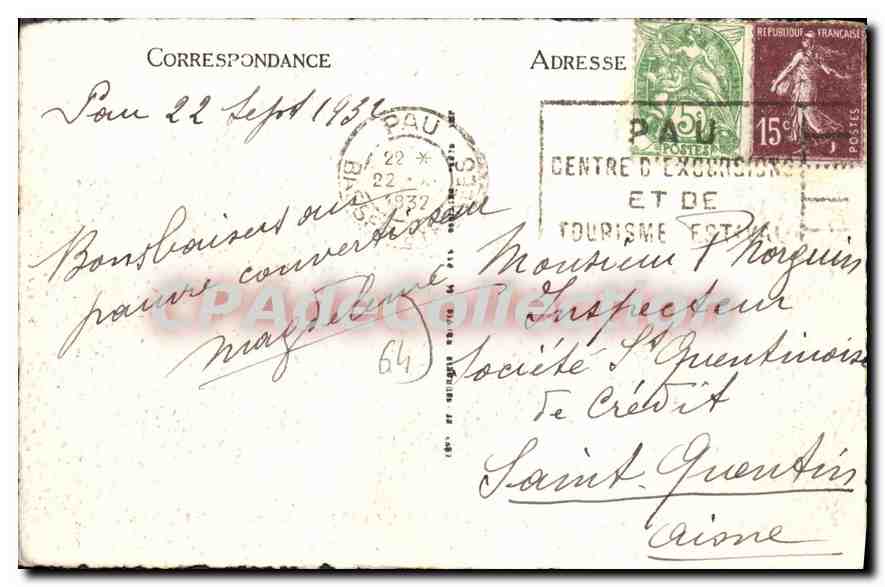 CORRESPONDANCE
ADRESSE
Pau 22 Sept 1932
Bons baisers au
pauvre convertisseur
Magdeleine
64
PAU
22 *
22
1932
BSES
5c
POSTES
REPUBLIQUE FRANÇAISE
15c
POSTES
PAU
CENTRE D'EXCURSIONS
ET DE
TOURISME ESTIVAL
Monsieur P Horguin
Inspecteur
Société St Quentinoise
de Crédit
Saint-Quentin
Aisne
CPAdeCollection